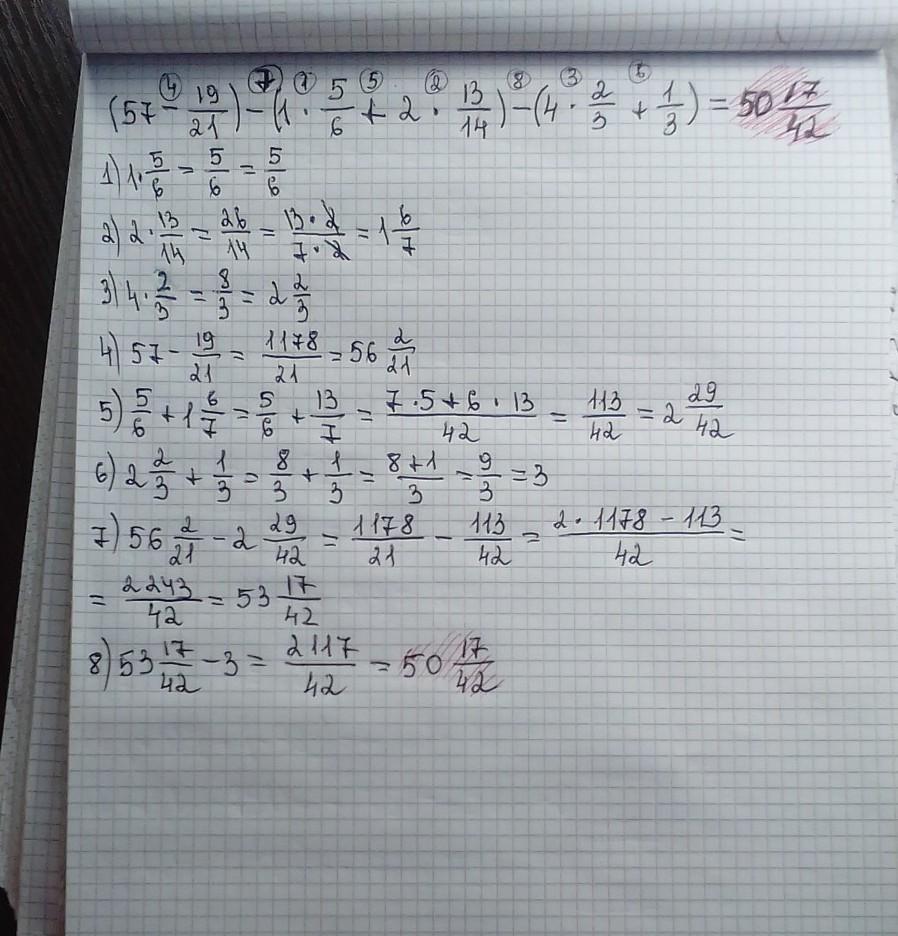 ④ ⑦ ① ⑤ ② ⑧ ③ ⑥
(57 - 19/21) - (1 · 5/6 + 2 · 13/14) - (4 · 2/3 + 1/3) = 50 17/42
1) 1 · 5/6 = 5/6 = 5/6
2) 2 · 13/14 = 26/14 = 13 · 2/7 · 2 = 1 6/7
3) 4 · 2/3 = 8/3 = 2 2/3
4) 57 - 19/21 = 1178/21 = 56 2/21
5) 5/6 + 1 6/7 = 5/6 + 13/7 = 7 · 5 + 6 · 13/42 = 113/42 = 2 29/42
6) 2 2/3 + 1/3 = 8/3 + 1/3 = 8 + 1/3 = 9/3 = 3
7) 56 2/21 - 2 29/42 = 1178/21 - 113/42 = 2 · 1178 - 113/42 =
= 2243/42 = 53 17/42
8) 53 17/42 - 3 = 2117/42 = 50 17/42